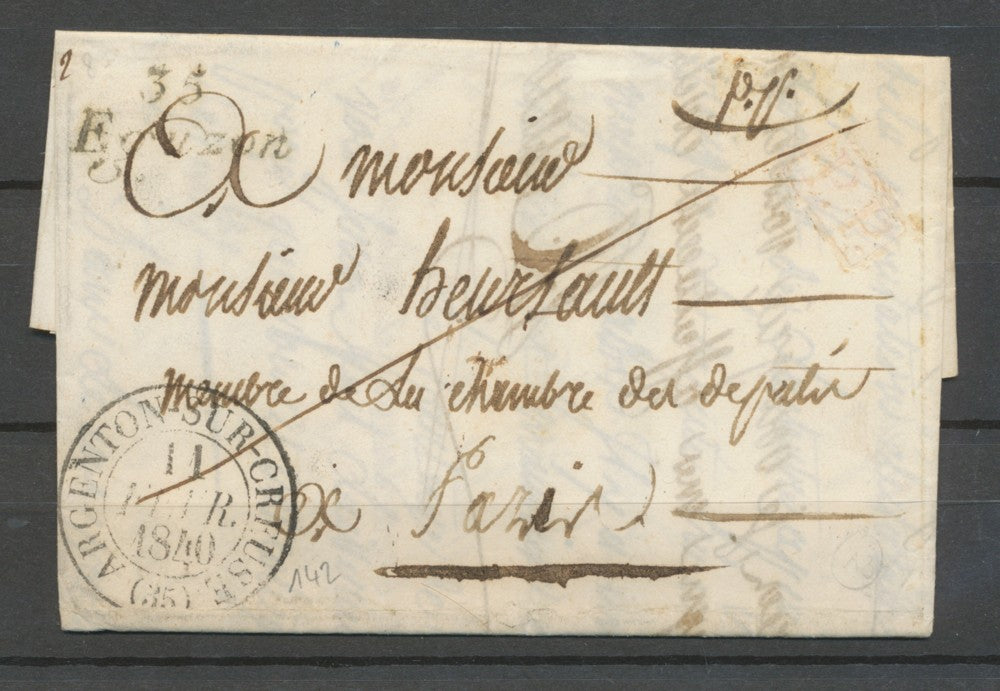 2
35
Eguzon
p.p.
A monsieur
monsieur heursault
membre de La chambre des deputés
a Paris
ARGENTON-SUR-CREUSE
11
FEVR.
1840
(35)
142
P.P.